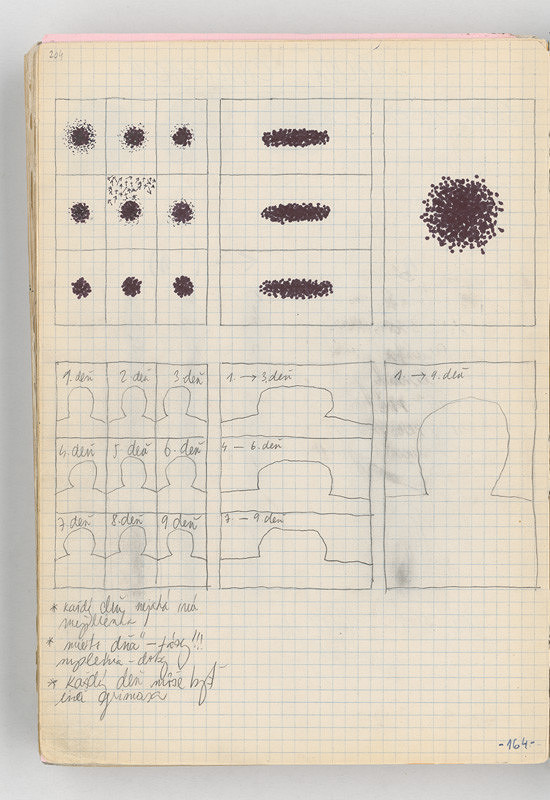 204
1. deň 2. deň 3. deň
4. deň 5. deň 6. deň
7. deň 8. deň 9. deň
1. → 3. deň
4 — 6. deň
7. — 9. deň
1. → 9. deň
* každý deň iná
myšlienka
* deň môže byť
iná grimasa
-164-